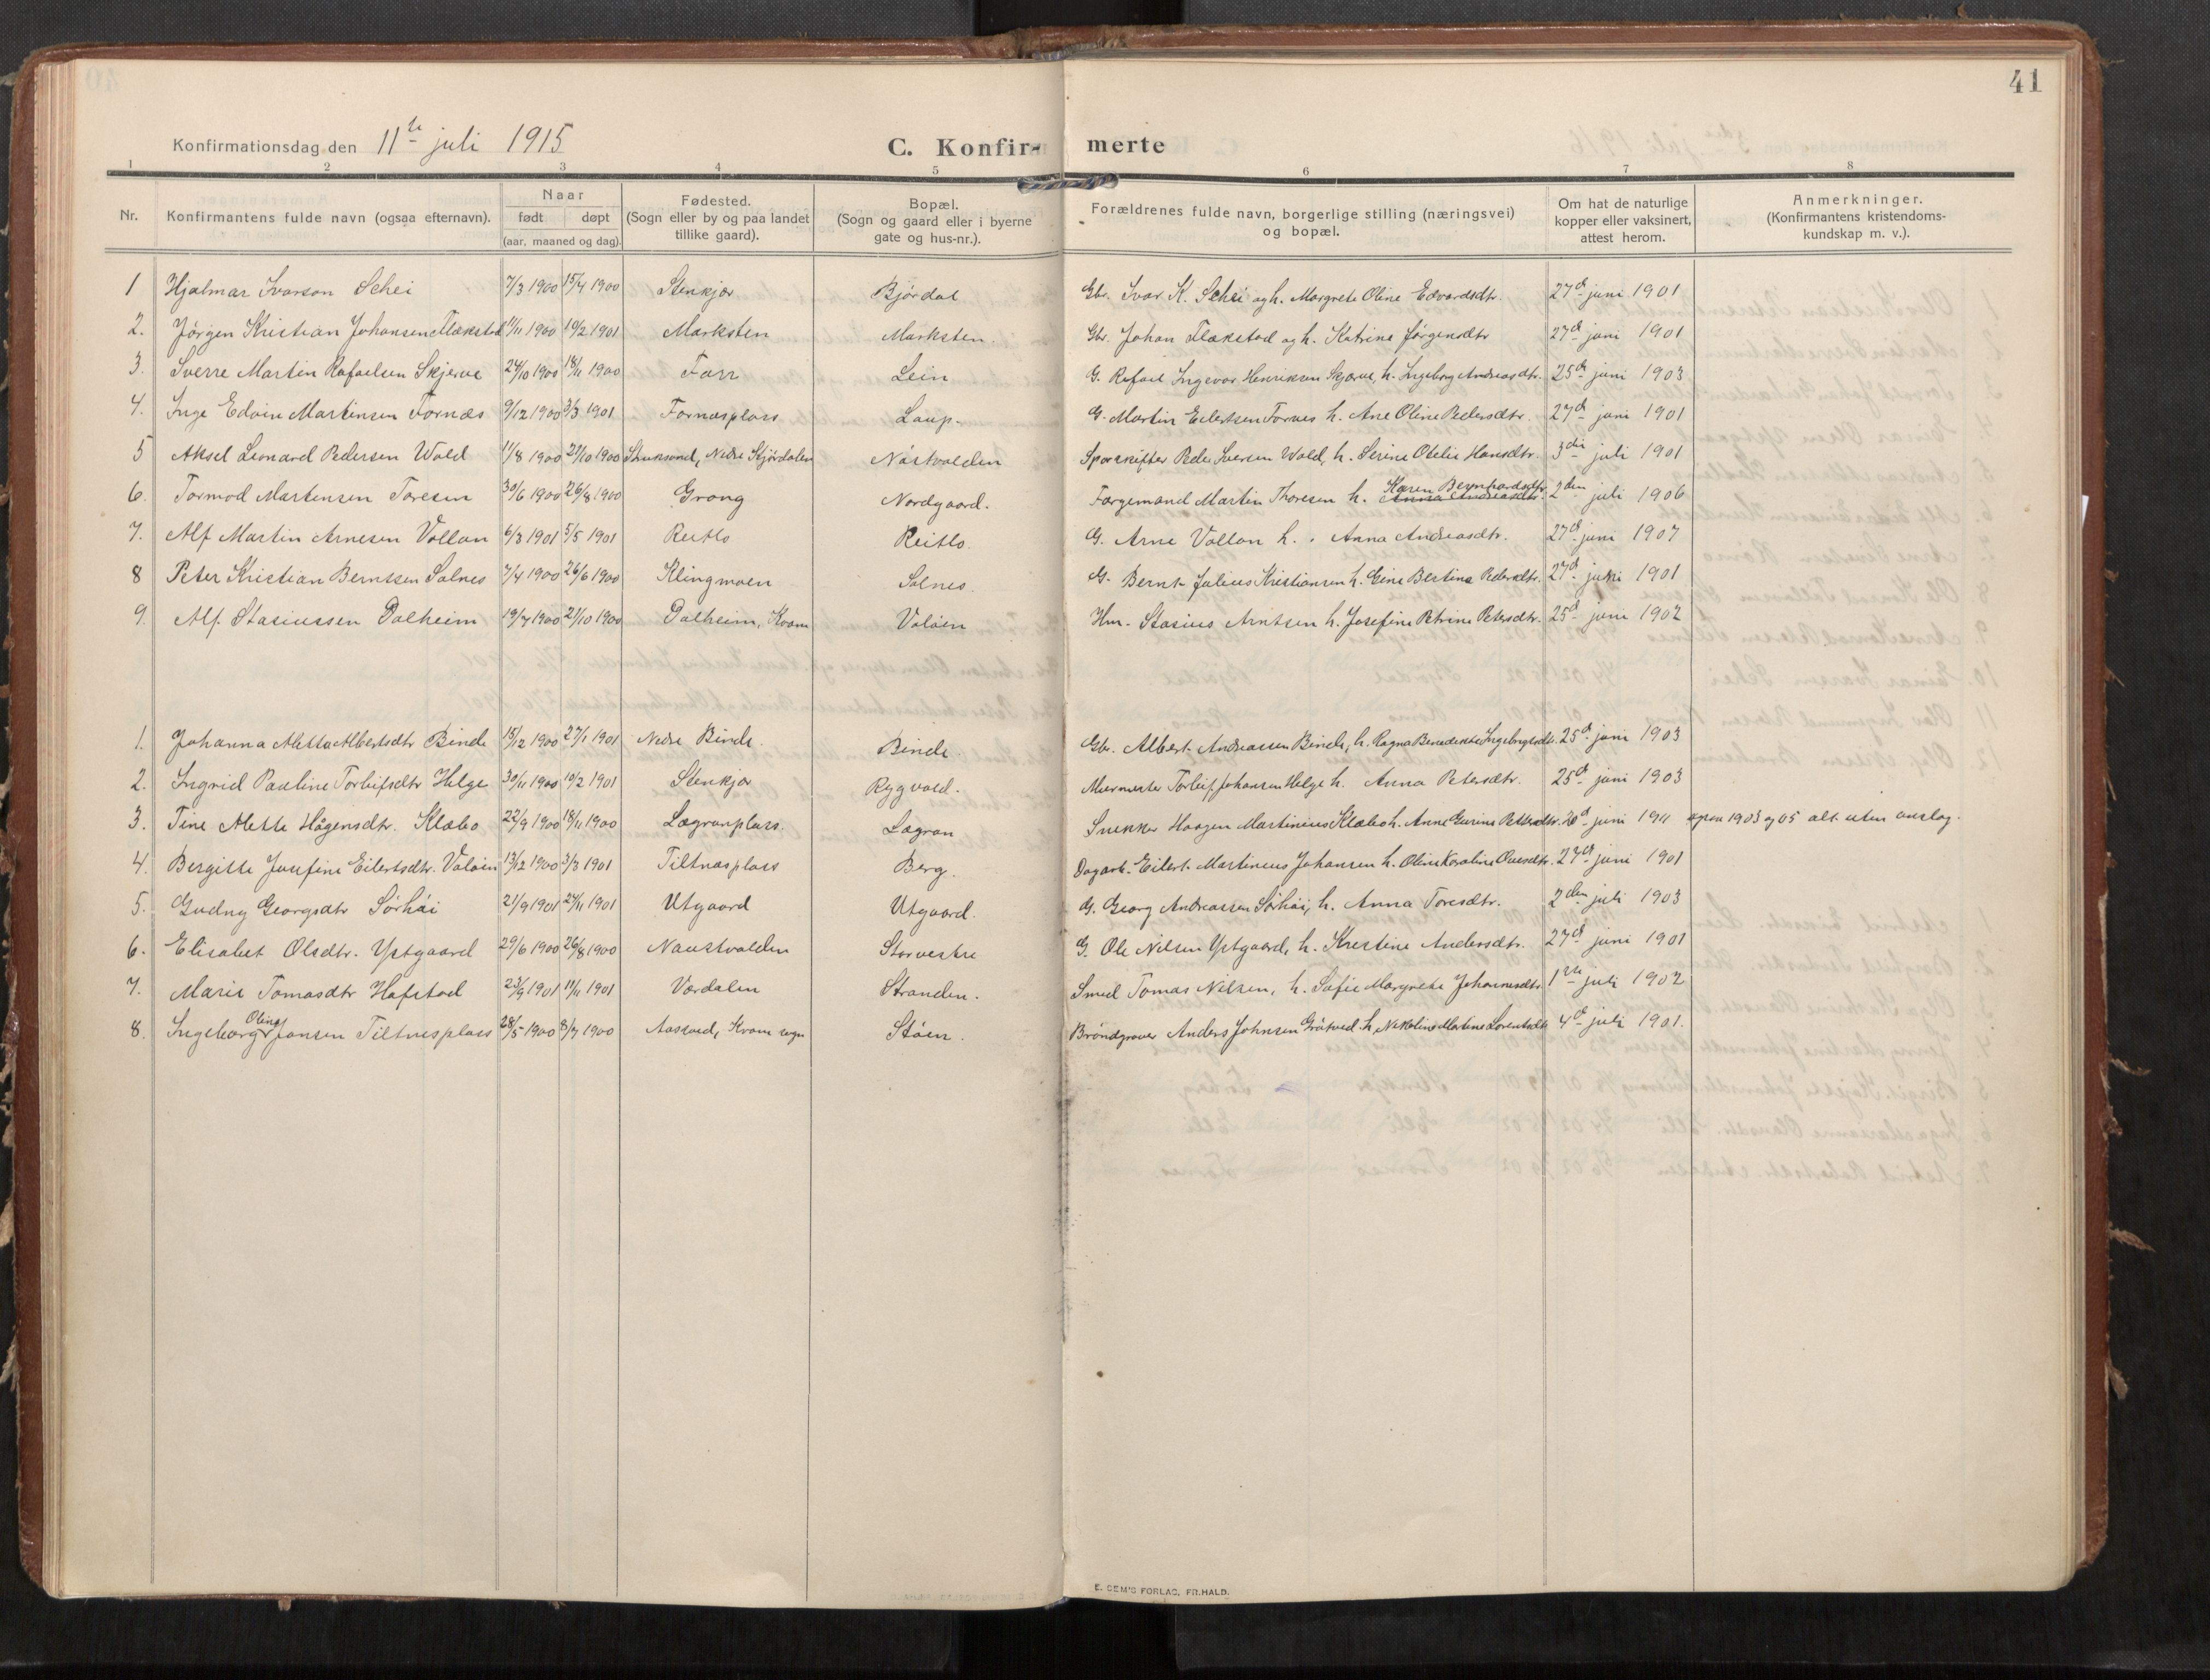 41
Konfirmationsdag den 11te juli 1915
C. Konfirmerte
1 2 3 4 5 6 7 8
Nr. Konfirmantens fulde navn (ogsaa efternavn). Naar født døpt (aar, maaned og dag). Fødested. (Sogn eller by og paa landet tillike gaard). Bopæl. (Sogn og gaard eller i byerne gate og hus-nr.). Forældrenes fulde navn, borgerlige stilling (næringsvei) og bopæl. Om hat de naturlige kopper eller vaksinert, attest herom. Anmerkninger. (Konfirmantens kristendomskundskap m. v.).
1 Hjalmar Ivarson Schei 7/3 1900 15/4 1900 Stenkjær Bjørdal Gbr. Ivar K. Schei og h. Margrete Oline Edvardsdtr. 27de juni 1901
2. Jørgen Kristian Johansen Flækstad 11/11 1900 10/2 1901 Marksten Marksten. Gbr. Johan Flækstad og h. Katrine Jørgensdtr 27de juni 1901
3. Sverre Martin Rafaelsen Skjerve 24/10 1900 18/11 1900 Forr Lein G. Rafael Ingevar Henriksen Skjerve, h. Ingeborg Andreasdtr. 25de juni 1903
4. Inge Edvin Martinsen Fornæs 9/12 1900 3/3 1901 Fornæsplass Laup. G. Martin Eilertsen Fornes h. Ane Oline Pedersdtr. 27de juni 1901
5 Aksel Leonard Pedersen Wold 11/8 1900 21/10 1900 Nedre Stjørdalen Nåstvolden Sporskifter Peder Iversen Wold, h. Serine Otelie Hansdtr. 3die juli 1901
6. Tormod Martinsen Toresen 30/6 1900 26/8 1900 Grong Nordgaard. Færgemand Martin Thoresen h. Karen Bernhardsdtr. Anna Andreasdtr. 2den juli 1906
7. Alf Martin Arnesen Vollan 6/3 1901 5/5 1901 Reitlo Reitlo. G. Arne Vollan h. Anna Andreasdtr. 27de juni 1907
8 Peter Kristian Berntsen Solnes 7/4 1900 26/6 1900 Klingmoen Solnes. G. Bernt Julius Kristiansen h. Eine Bertine Pedersdtr. 27de juni 1901
9. Alf Stasiussen Dalheim 19/7 1900 21/10 1900 Dalheim, Kvam Valøen Hm. Stasius Arntsen h. Josefine Petrine Petersdtr. 25de juni 1902
1. Johanna Aletta Albertsdtr Binde 15/12 1900 27/1 1901 Nedre Binde. Binde. Gbr. Albert Andreassen Binde, h. Ragna Benedikte Ingebrigtsdtr. 25de juni 1903
2. Ingrid Pauline Torleifsdtr Helge 30/11 1900 10/2 1901 Stenkjær Rygvold. Murmester Torleif Johansen Helge h. Anna Petersdtr. 25de juni 1903
3. Tine Alette Hågensdtr. Klæbo 22/9 1900 18/11 1900 Lægranplass. Lægran Snekker Haagen Martinius Klæbo h. Anne Gurine Pettersdtr. 20de juni 1911 ogsaa 1903 og 05 alt uten anslag.
4. Bergitte Josefine Eilertsdtr. Valøen 13/12 1900 3/3 1901 Tiltnesplass Berg. Dagarb. Eilert Martinius Johansen h. Oline Karoline Olausdtr. 27de juni 1901
5. Gudny Georgsdtr Sørhåi 21/9 1901 24/11 1901 Utgaard Utgaard. G. Georg Andreassen Sørhåi, h. Anna Toresdtr. 2den juli 1903
6. Elisabet Olsdtr. Ystgaard 29/6 1900 26/8 1900 Naustvolden Storvestre G. Ole Nilsen Ystgaard, h. Kristine Andersdtr. 27de juni 1901
7. Marie Tomasdtr Hafstad 23/9 1901 11/11 1901 Værdalen Stranden. Smed Tomas Nilsen, h. Sofie Margrete Johannesdtr 1ste juli 1902
8. Ingeborg Oline Jonsen Tiltnesplass 28/5 1900 8/7 1900 Aasved, Kvam sogn Støen. Brøndgraver Anders Johnsen Gråtved h. Nikoline Martine Lorentsdtr 4de juli 1901.
E. SEM'S FORLAG, FR.HALD.